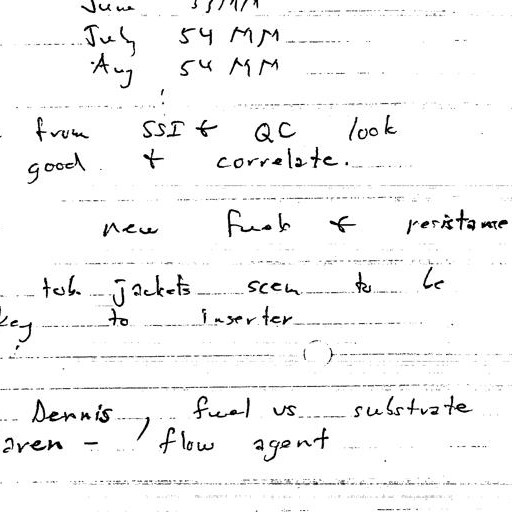 June
July 54 MM
Aug 54 MM
from SSI + QC look
good + correlate.
new fuel + resistance
tob. jackets seem to be
key to inserter
Dennis, fuel vs substrate
aren - flow agent